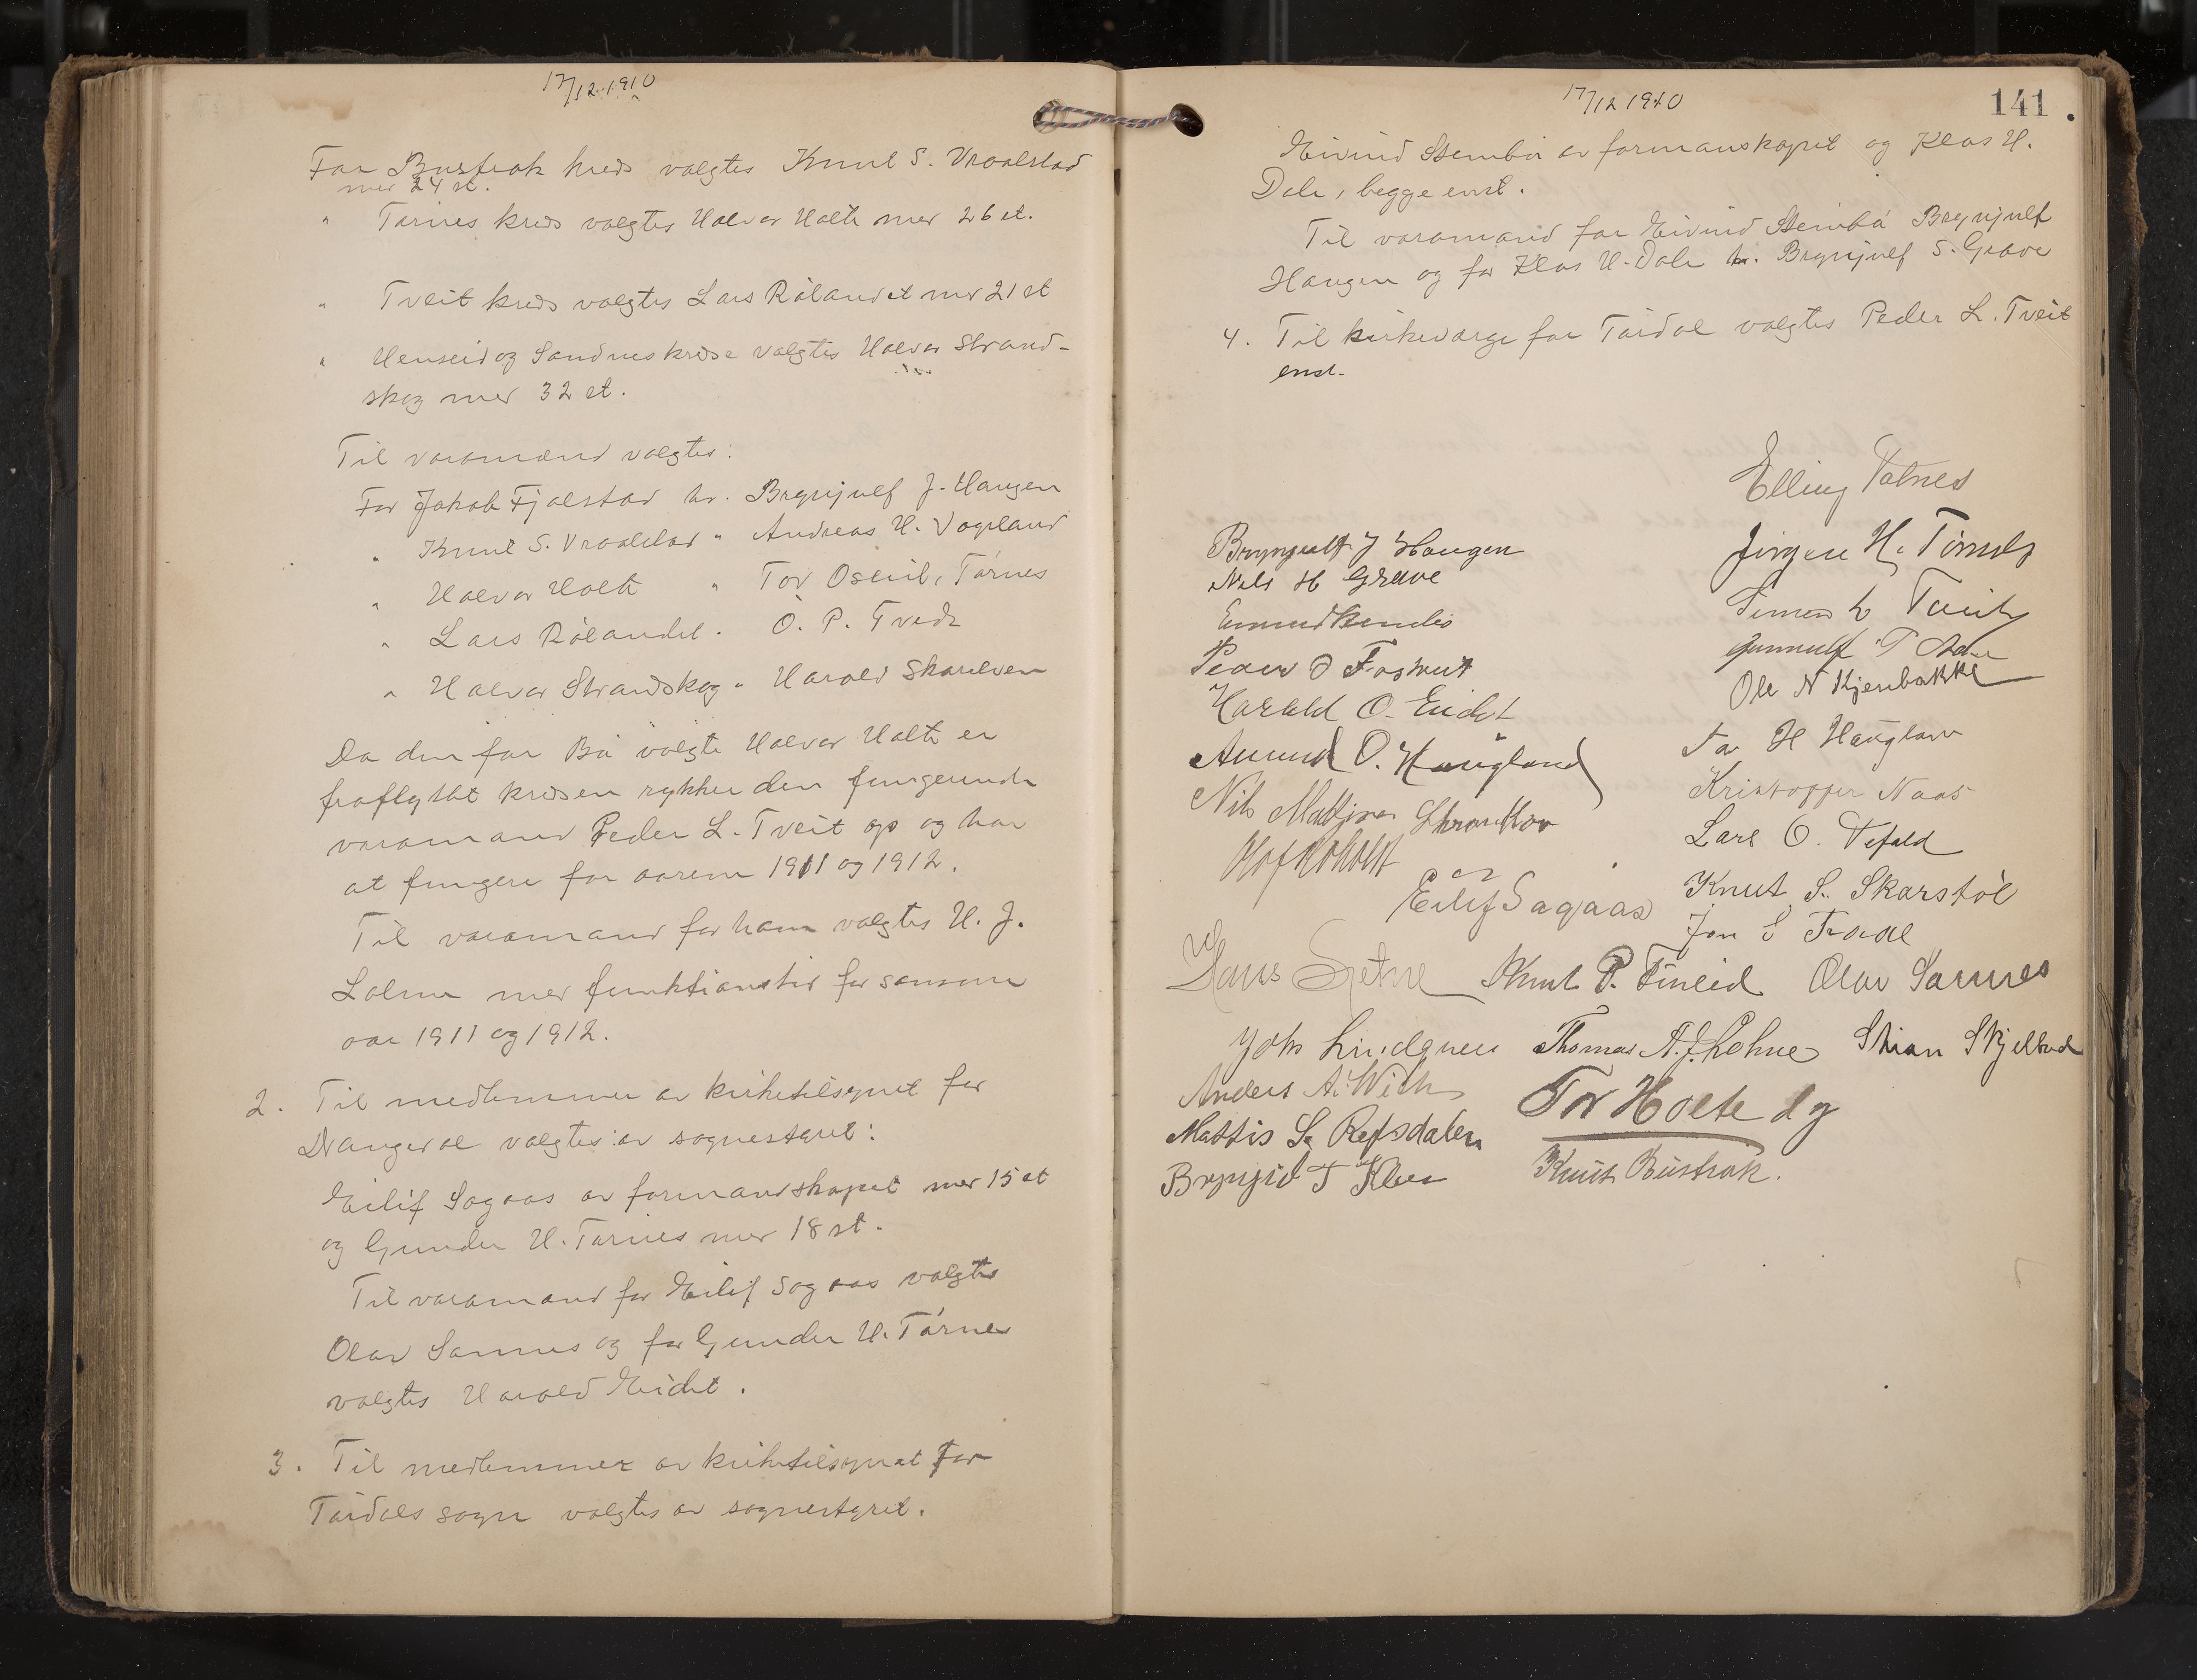 17/12 1910
For Busfrak kreds valgtes Knut S. Vraalstad
med 24 st.
" Tørnes kreds valgtes Halvor Holte med 26 st.
" Tveit kreds valgtes Lars Rølandet med 21 st
" Henseid og Sandnes kredse valgtes Halvor Strand-
skog med 32 st.
Til varamænd valgtes:
For Jakob Fjalestad hr. Brynjulf J. Haugen
" Knut S. Vraalstad " Andreas H. Vogsland
" Halvor Holte " Tov Oseid, Tørnes
" Lars Rølandet. O. P. Tvedt
" Halvor Strandskog " Harald Skarelven
Da den for Bø valgte Halvor Holte er
fraflyttet kredsen rykker den fungerende
varamand Peder L. Tveit op og har
at fungere for aarene 1911 og 1912.
Til varamand for ham valgtes H. J.
Lohne med funktionstid for samme
aar 1911 og 1912.
2. Til medlemmer av kirketilsynet for
Drangedal valgtes av sognestyret:
Eilif Sagaas av formandskapet med 15 st
og Gunder H. Tørnes med 18 st.
Til varamand for Eilif Sagaas valgtes
Olav Sannes og for Gunder H. Tørnes
valgtes Harald Eidet.
3. Til medlemmer av kirketilsynet for
Tørdals sogn valgtes av sognestyret.
17/12 1910
141.
Eivind Stenbø av formanskapet og Klas H.
Dale, begge enst.
Til varamand for Eivind Stenbø Brynjulf
Haugen og for Klas H. Dale hr. Brynjulf S. Grave
4. Til kirkeværge for Tørdal valgtes Peder L. Tveit
enst.
Elling Tatnes
Brynjulf J Haugen
Jørgen H.
Nils H Grave
Simon L Tveit
Gunnulf T
Peder O Fostveit
Ole N Kjenbakke
Harald O. Eidet
H Haugland
Amund O. Haugland
Kristoffer Naas
Nils Mattisen
Lars O. Vefald
Eilef Sagaas
Knut S. Skarstøl
Jon E
Hans Sætre Knut P. Fineid Olav Sannes
Joh Lindgren Thomas A. J. Lohne Stian Skjelbred
Anders A. Wich
Tor Holte dy
Mattis S. Refsdalen
Brynjul T Klev
Knut Busfrak.